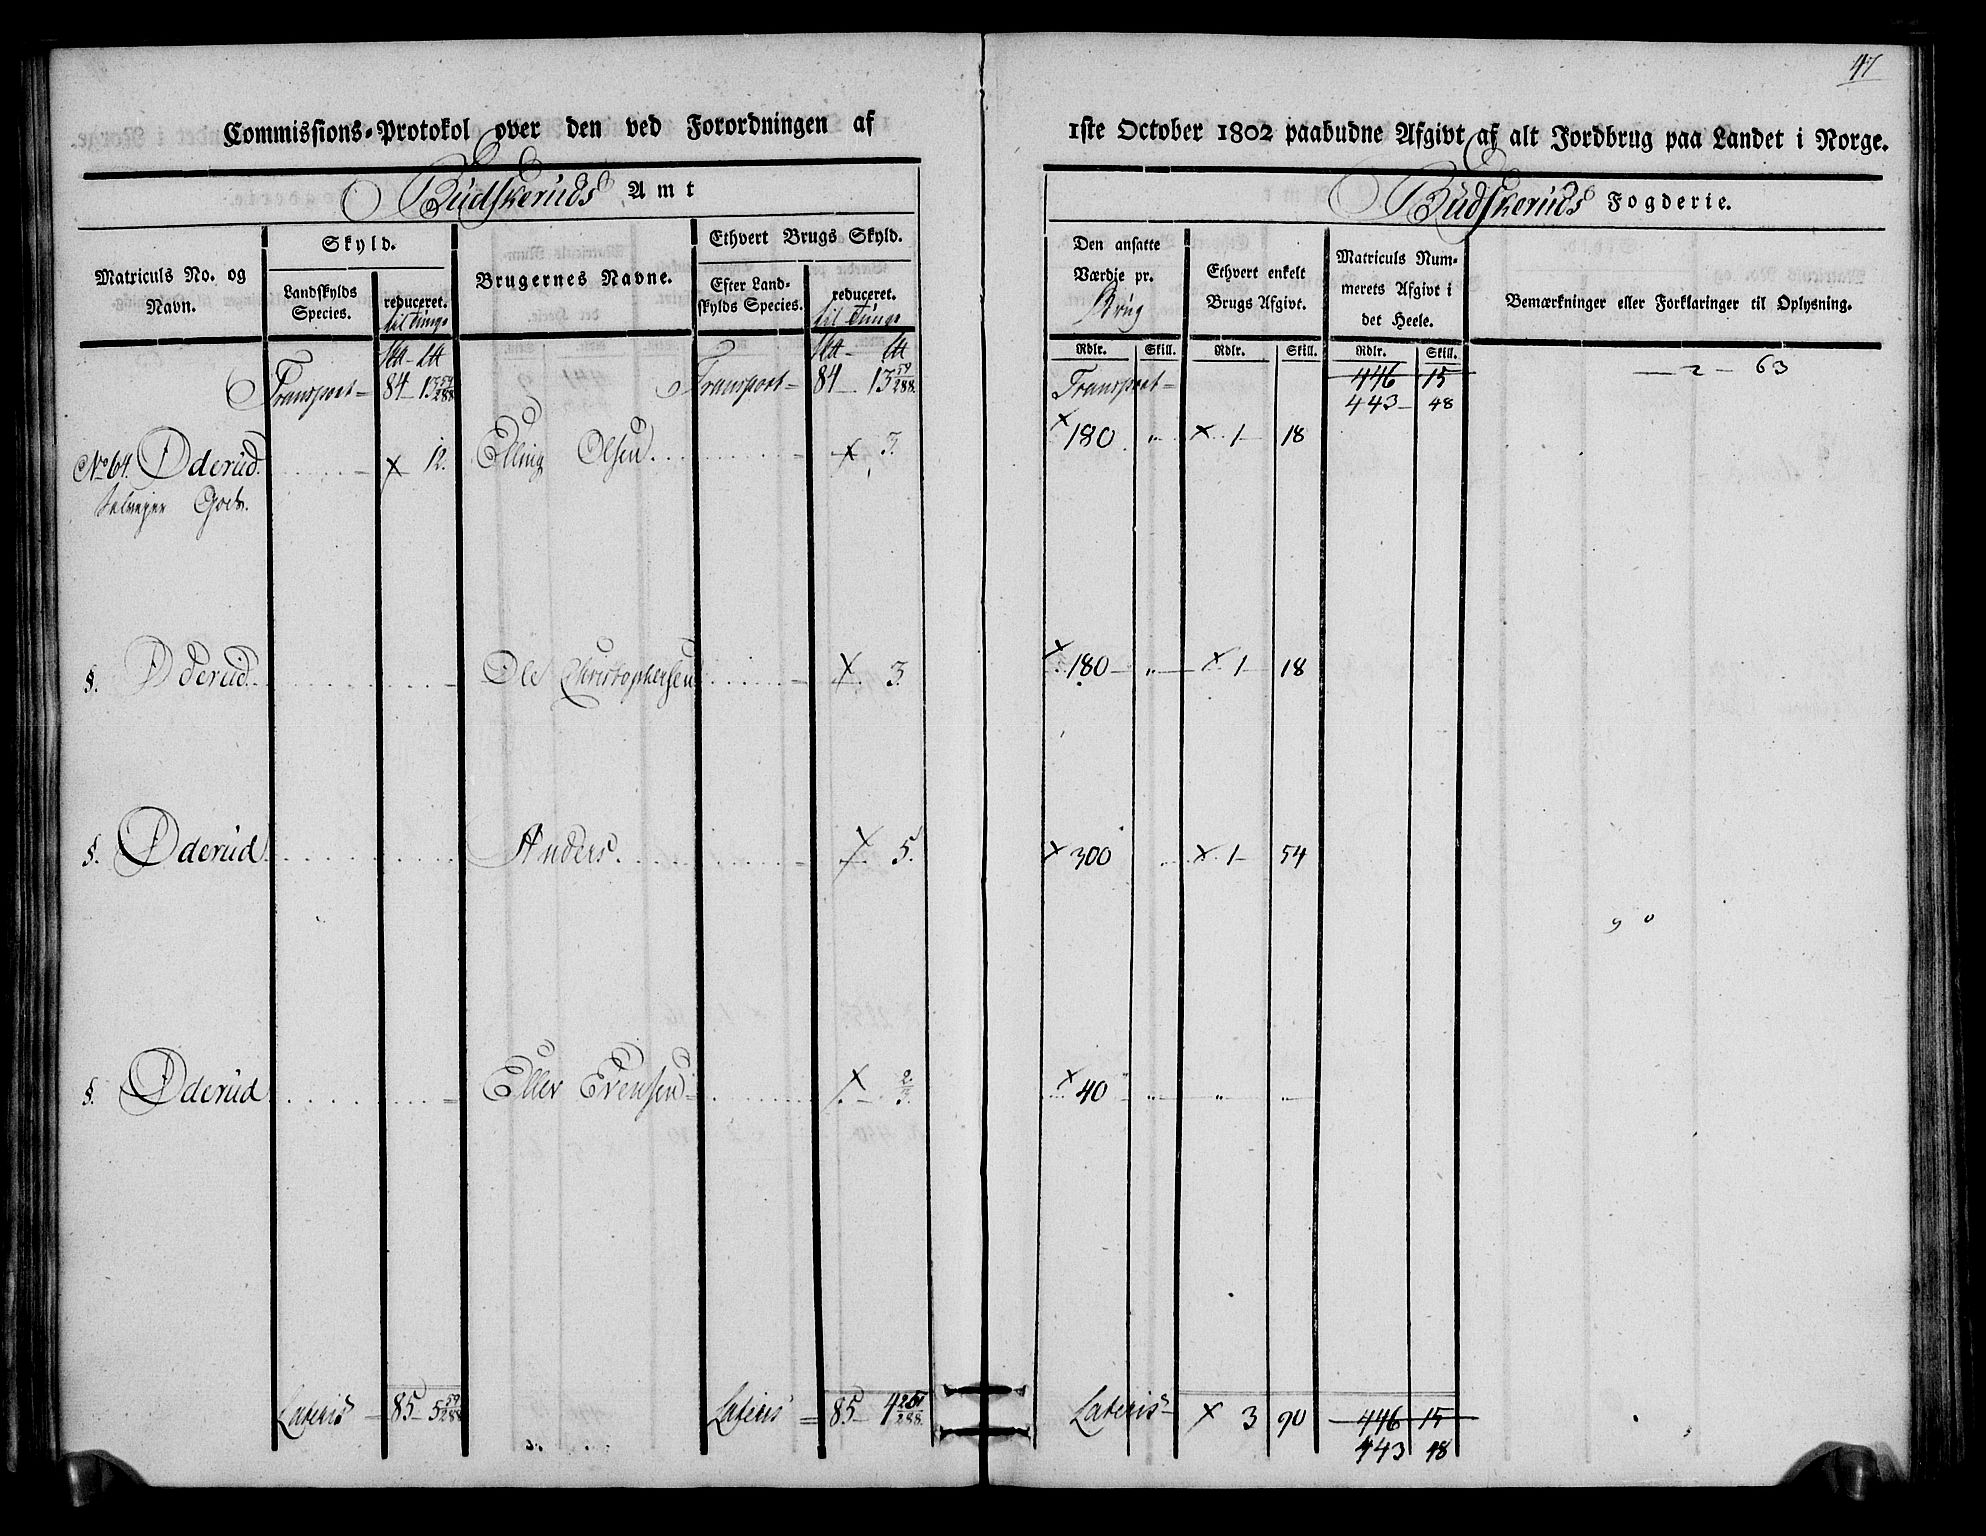 47
Commissions-Protokol over den ved Forordningen af
1ste October 1802 paabudne Afgivt af alt Jordbrug paa Landet i Norge.
Budskeruds Amt
Budskeruds Fogderie.
Matriculs No. og Navn.
Skyld.
Landskylds Species.
reduceret. til Tunge
Brugernes Navne.
Ethvert Brugs Skyld.
Efter Landskylds Species.
reduceret. til Tunge
Den ansatte Værdie pr. Brug
Ethvert enkelt Brugs Afgivt.
Matriculs Nummerets Afgivt i det Heele.
Bemærkninger eller Forklaringer til Oplysning.
Rdlr. Skill. Rdlr. Skill. Rdlr. Skill.
Transport – 84 – 13 59/288 Transport – 84 – 13 59/288 Transport – 446 15 — 2 — 63
443 – 48
No 64. Øderud. x 12. Elling Olsen. x 3. x 180 „ x 1 – 18
Selveyer Gods.
§. Øderud. Ole Christophersen x 3. x 180 – „ x 1 – 18
§. Øderud Anders. x 5. x 300 „ x 1 – 54
§. Øderud Eller Evensen x 2/3. x 40 „ „ „
Lateris = 85 – 5 59/288 Lateris = 85 – 4 251/288 Lateris – x 3 90 446 15
443 48